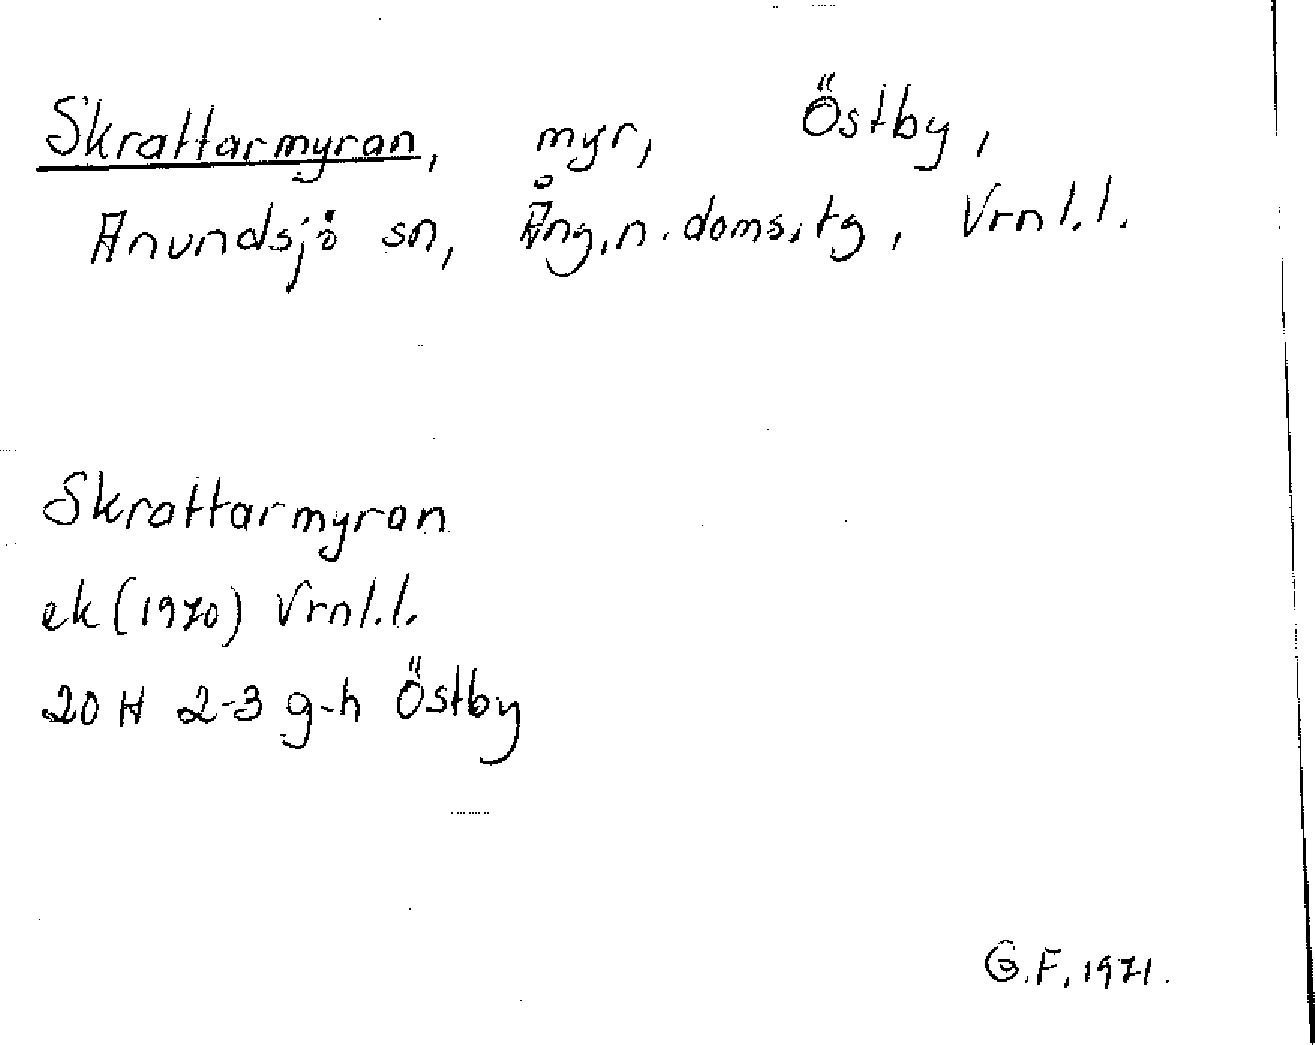 Skrattarmyran, myr, Östby,
Anundsjö sn, Ång.n.doms.tg, Vrnl.l.
Skrattarmyran
ek (1970) Vrnl.l.
20 H 2-3 g-h Östby
G.F. 1971.